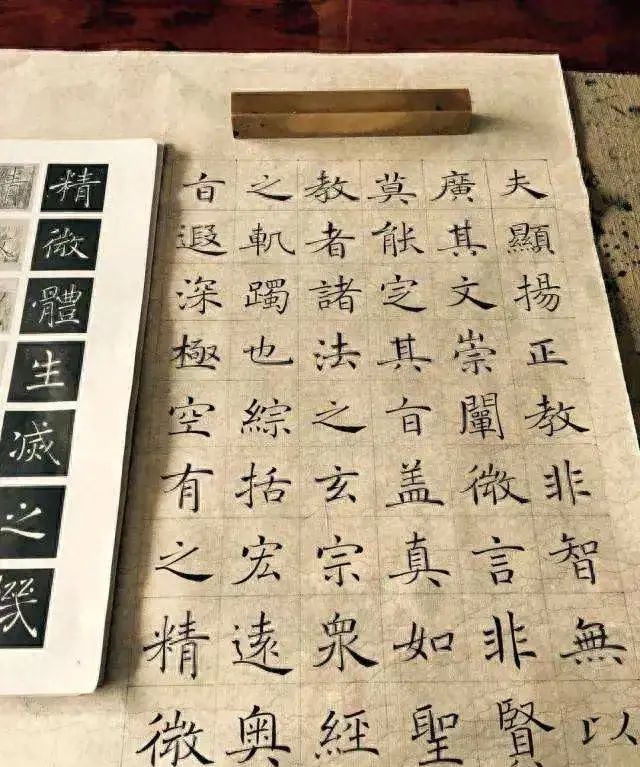 夫顯揚正教非智無以
廣其文崇闡微言非賢
莫能定其旨盖真如聖
教者諸法之玄宗眾經
之軌躅也綜括宏遠奧
旨遐深極空有之精微
精微體生滅之機